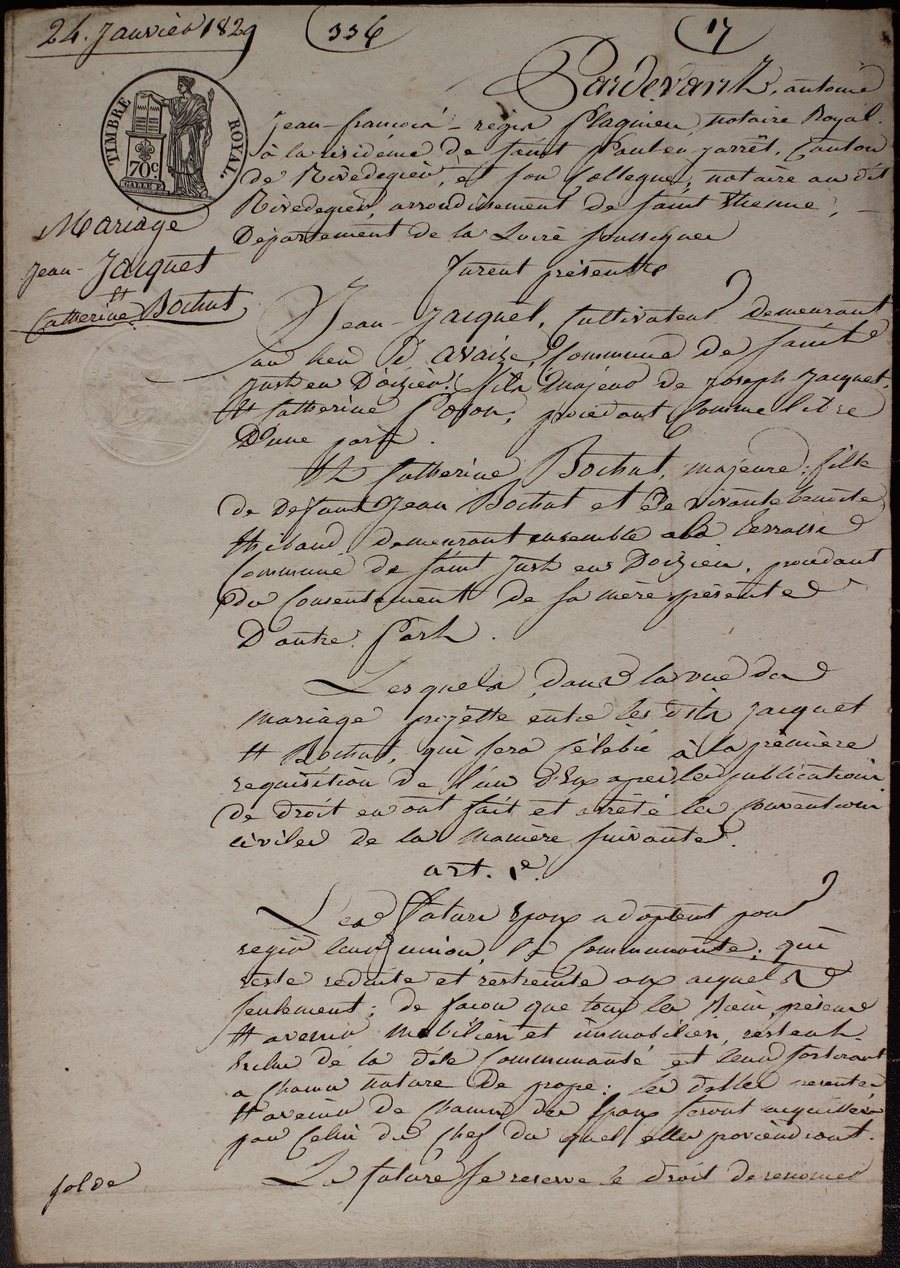 24. Janvier 1829
336
17
TIMBRE ROYAL.
70c
Mariage
Jean Jacquet
et
Catherine Bochut
Pardevant, antoine
Jean-francois-regis flaquien, notaire Royal
à la residence de saint Paul en jarrêt, Canton
de Rivedegier, et son Collegue, notaire au dit
Rivedegier, arrondissement de saint Etienne,
Département de la Loire soussignes
furent présents
Jean Jacquet, Cultivateur demeurant
au lieu d'avaize, Commune de saint
Just en Doizieu, fils majeur de joseph jacquet,
et Catherine, procedant comme libre
D'une part.
Et Catherine Bochut, majeure, fille
de defunt Jean Bochut et de vivante benoite
thibaud, demeurant ensemble a la terrasse
Commune de saint Just en Doizieu, procedant
du Consentement de sa mère présente
D'autre Part.
Lesquels, dans la vue du
mariage projette entre les dits jacquet
et Bochut, qui sera célébré à la première
requisition de l'un d'Eux apres les publications
de droit en ont fait et arrêté les conventions
civiles de la manière suivante.
art. 1e.
Les futurs Epoux adoptent pour
regir leur union, la Communauté, qui
reste reduite et restreinte aux acquets
seulement; de façon que tous les Biens présens
et avenir, mobiliers et immobiliers, restent
exclus de la dite Communauté et leur sortiront
a chacun nature de propre: les dettes presentes
et avenir de chacun des Epoux seront acquittées
par Celui du Chef du quel elles proviendront.
La future se reserve le droit de renoncer
solde